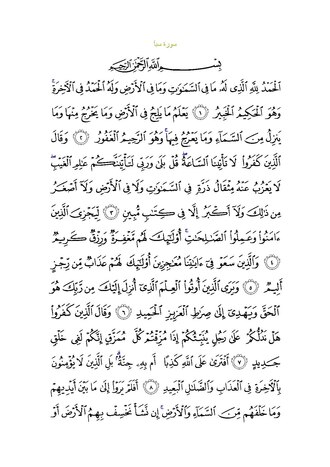 سورة سبأ
بِسْمِ اللَّهِ الرَّحْمَٰنِ الرَّحِيمِ
الْحَمْدُ لِلَّهِ الَّذِي لَهُ مَا فِي السَّمَاوَاتِ وَمَا فِي الْأَرْضِ وَلَهُ الْحَمْدُ فِي الْآخِرَةِ
وَهُوَ الْحَكِيمُ الْخَبِيرُ ١ يَعْلَمُ مَا يَلِجُ فِي الْأَرْضِ وَمَا يَخْرُجُ مِنْهَا وَمَا
يَنزِلُ مِنَ السَّمَاءِ وَمَا يَعْرُجُ فِيهَا وَهُوَ الرَّحِيمُ الْغَفُورُ ٢ وَقَالَ
الَّذِينَ كَفَرُوا لَا تَأْتِينَا السَّاعَةُ قُلْ بَلَىٰ وَرَبِّي لَتَأْتِيَنَّكُمْ عَالِمِ الْغَيْبِ
لَا يَعْزُبُ عَنْهُ مِثْقَالُ ذَرَّةٍ فِي السَّمَاوَاتِ وَلَا فِي الْأَرْضِ وَلَا أَصْغَرُ
مِن ذَٰلِكَ وَلَا أَكْبَرُ إِلَّا فِي كِتَابٍ مُّبِينٍ ٣ لِّيَجْزِيَ الَّذِينَ
آمَنُوا وَعَمِلُوا الصَّالِحَاتِ أُولَٰئِكَ لَهُم مَّغْفِرَةٌ وَرِزْقٌ كَرِيمٌ
٤ وَالَّذِينَ سَعَوْ فِي آيَاتِنَا مُعَاجِزِينَ أُولَٰئِكَ لَهُمْ عَذَابٌ مِّن رِّجْزٍ
أَلِيمٌ ٥ وَيَرَى الَّذِينَ أُوتُوا الْعِلْمَ الَّذِي أُنزِلَ إِلَيْكَ مِن رَّبِّكَ هُوَ
الْحَقَّ وَيَهْدِي إِلَىٰ صِرَاطِ الْعَزِيزِ الْحَمِيدِ ٦ وَقَالَ الَّذِينَ كَفَرُوا
هَلْ نَدُلُّكُمْ عَلَىٰ رَجُلٍ يُنَبِّئُكُمْ إِذَا مُزِّقْتُمْ كُلَّ مُمَزَّقٍ إِنَّكُمْ لَفِي خَلْقٍ
جَدِيدٍ ٧ أَفْتَرَىٰ عَلَى اللَّهِ كَذِبًا أَم بِهِ جِنَّةٌ بَلِ الَّذِينَ لَا يُؤْمِنُونَ
بِالْآخِرَةِ فِي الْعَذَابِ وَالضَّلَالِ الْبَعِيدِ ٨ أَفَلَمْ يَرَوْا إِلَىٰ مَا بَيْنَ أَيْدِيهِمْ
وَمَا خَلْفَهُم مِّنَ السَّمَاءِ وَالْأَرْضِ إِن نَّشَأْ نَخْسِفْ بِهِمُ الْأَرْضَ أَوْ